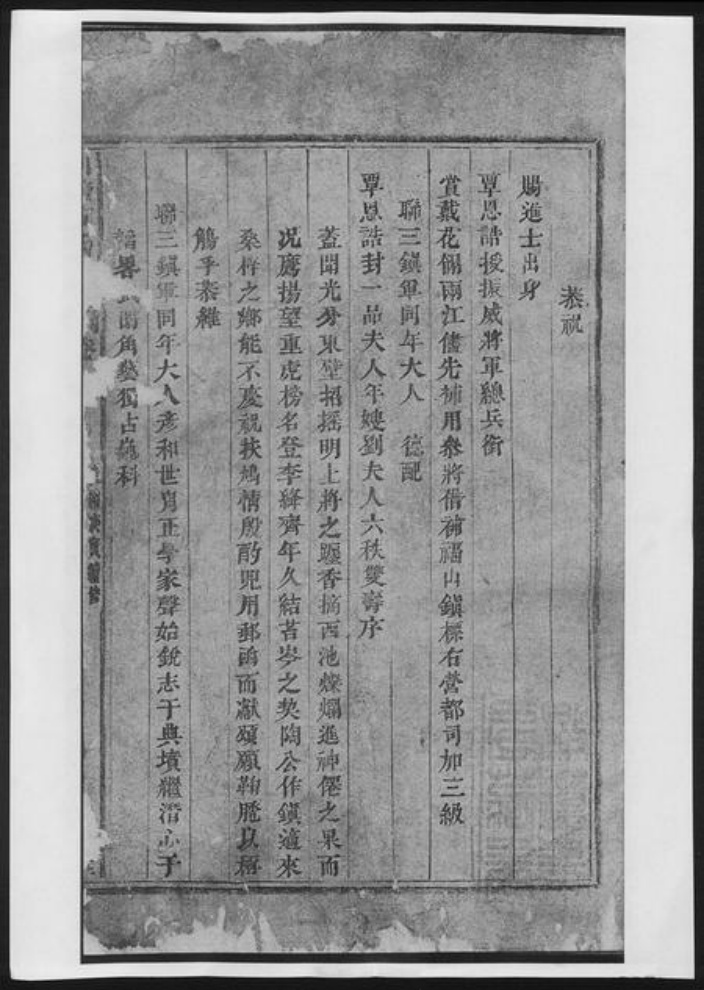 恭祝
賜進士出身
覃恩誥授振威將軍總兵銜
賞戴花翎兩江儘先補用叅將借補福山鎮標右營都司加三級
聯三鎮軍同年大人 德配
覃恩誥封一品夫人年嫂劉夫人六秩雙壽序
蓋聞光分東壁招搖明上將之躔香摘西池燦爛進神僊之果而
况鷹揚望重虎榜名登李絳齊年久結苔岑之契陶公作鎮適來
桑梓之鄉能不慶祝扶鳩情殷酌兕用郵函而獻頌願鞠𦝫以稱
觴乎恭維
聯三鎮軍同年大人彥和世冑正學家聲始銳志于典墳繼潛心于
韜畧 角藝獨占巍科